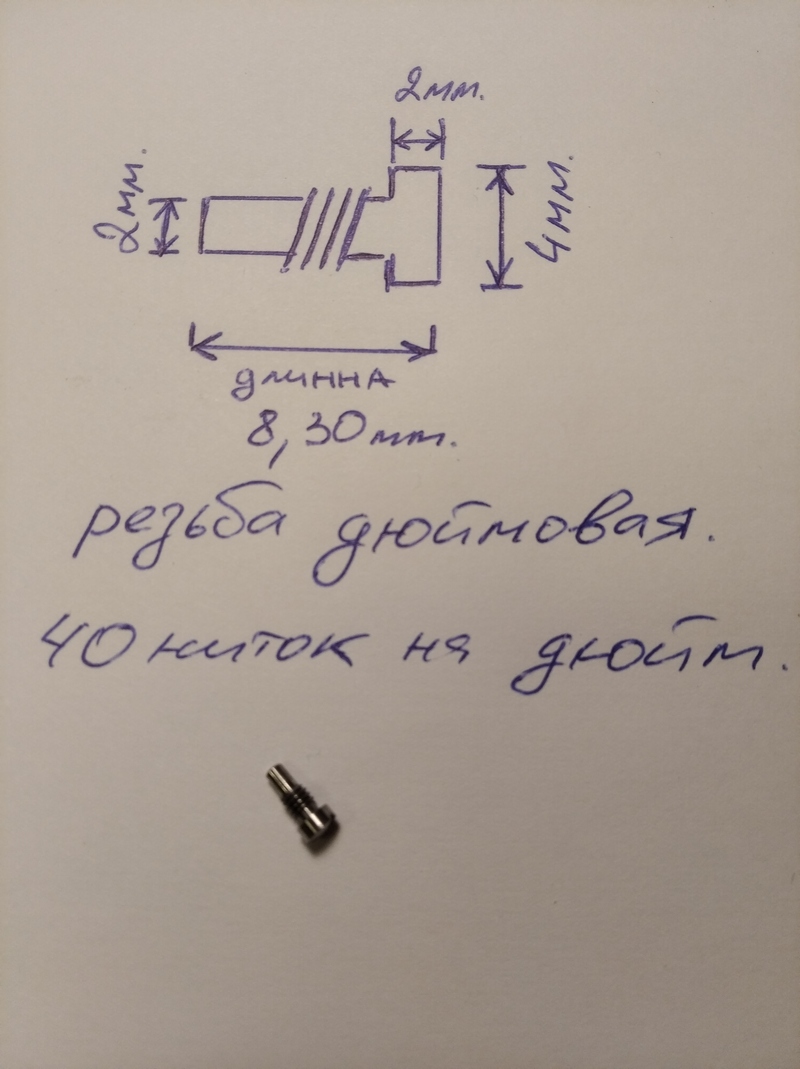 2мм.
2мм.
4мм.
длинна
8,30мм.
резьба дюймовая.
40 ниток на дюйм.